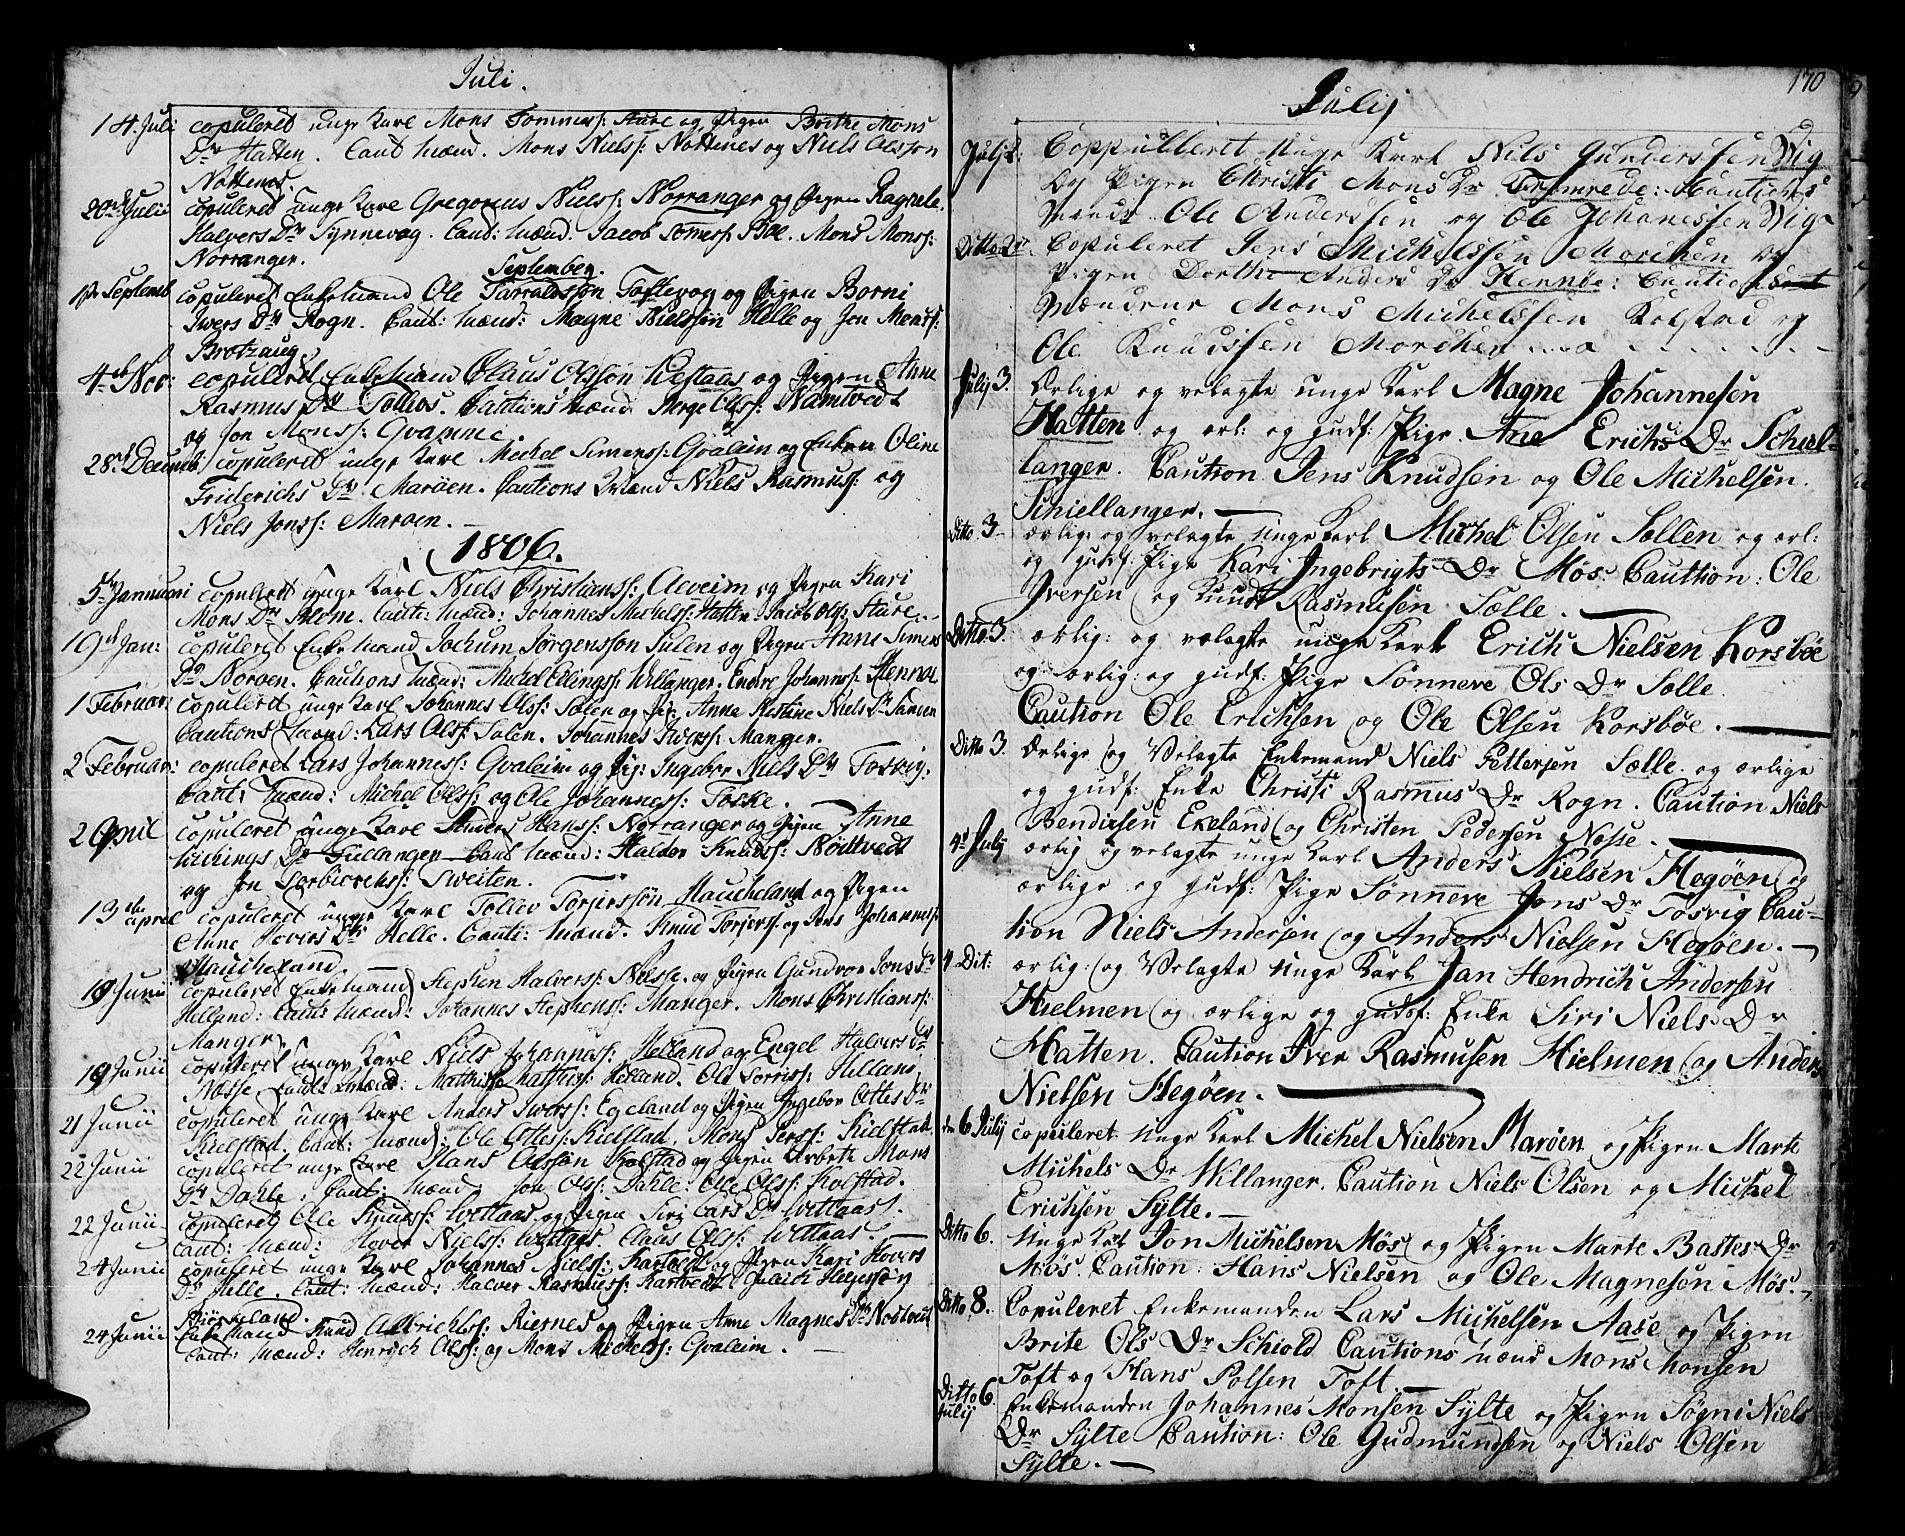 Juli.
14. Juli copuleret unge Karl Mons Tommess: Aase og Pigen Brithe Mons
Dtr Hatten. Caut: Mænd. Mons Nielss: Nottenes og Niels Olsson
Nottenes.
20de Julii copuleret unge Karl Gregorius Nielss: Norranger og Pigen Ragnele
Halvers Dtr Synnevog. Caut: Mænd. Jacob Tomess: Boe. Mons Monss:
Norranger.
September.
1te Septemb copuleret Enkemand Ole Tarraldsson Toftevog og Pigen Borni
Iwers Dtr Rogn. Caut: Mænd: Magne Nielsson Helle og Jon Monss:
Brotzaug
4de Nov: copuleret Enkemand Claus Olsson Westaas og Pigen Anne
Rasmus Dtr Tolleos. Cautions Mænd Berge Olss: Namtvedt
og Jon Monss: Qvamme.
28de Decemb copuleret unge Karl Michel Simenss: Qvaleim og Enken Oline
Friderichs Dtr Marøen. Cautions Mænd Niels Rasmuss: og
Niels Jonss: Marøen.
1806.
5te Januarii copuleret unge Karl Niels Christianss: Alveim og Pigen Kari
Mons Dtr Blom. Caut: Mænd: Johannes Michelss: Hatten Jacob Olss: Sture.
19de Jan: copuleret Enkemand Jochum Jørgensson Sulen og Pigen Anne Simens
Dtr Noroen. Cautions Mænd: Michel Ellingss: Willanger. Endre Johanness: Hennøe
1 Februar: copuleret unge Karl Johannes Olss: Solen og Pig: Anne Kirstine Niels Dtr Sanden
Cautions Mænd: Lars Olss: Solen. Johannes Iwerss: Manger.
2 Februar: copuleret Lars Johanness: Qvaleim og Pig: Ingebor Niels Dtr Toskey:
Caut: Mænd: Michel Olss: og Ole Johanness: Toske.
2 April copuleret unge Karl Anders Hanss: Norranger og Pigen Anne
Wichings Dtr Gullanger Caut Mænd: Haldor Knudss: Nødtvedt
og Jon Torbiørchs: Tweiten.
13de april copuleret unge Karl Tollev Torjersson Haucheland og Pigen
Anne Hovers Dtr Helle. Caut: Mænd. Knud Torjerss: og Jens Johanness:
Haucheland
19 Junii copuleret Enkemand Stephen Halverss: Nesse og Pigen Gundvor Jons Dtr
Helland: Caut: Mænd: Johannes Stephenss: Manger. Mons Christianss:
Manger
19 Junii copuleret unge Karl Niels Johanness: Helland og Engel Halvers Dtr
Nøsse Caut: Mænd: Matthis Matthiss: Helland. Ole Hellans
21 Junii copuleret unge Karl Anders Iwerss: Egeland og Pigen Ingebor Ottes Dtr
Kielstad. Caut: Mænd: Ole Ottess: Kielstad. Mons Perss: Kielstad
22 Junii copuleret unge Karl Hans Olsson Kolstad og Pigen Mons
Dtr Dahle: Caut: Mænd: Jon Olss: Dahle: Ole Olss: Kolstad.
22 Junii copuleret Ole Knudss: Wetlaas og Pigen Siri Lars Dtr Wetlaas.
Caut: Mænd: Hover Nielss: Wetlaas Claus Olss: Wetlaas.
24 Junii copuleret unge Karl Johannes Nielss: Kartvedt og Pigen Kari Hovers
Dtr Helle. Caut: Mænd: Halver Rasmuss: Kartvedt. Helgesson
24 Junii Enkemand Knud Albrichtss: Kiernes og Pigen Anne Magnes Dtr Nødtvedt
Caut: Mænd: Henrich Olss: og Mons Michelss: Qvaleim.
170
Julij
Julj Coppulleret Unge Karl Nils Gunderssen Wig
og Pigen Christi Mons Dr Fremrede: Cautions
Mænd Ole Anderssen og Ole Johanessen Wig
Ditto Copuleret Jens Michelssen Morchen og
Pigen Dorthe Anders Dr Hennøe: Cautions
Mændene Mons Michelssen Kolstad og
Ole Knudssen Morchen
Julij 3. Ærlige og velagte unge Karl Magne Johannesen
Hatten og ærl: og gudf: Pige Ane Erichs Dr Schiel-
langer. Caution Jens Knudsen og Ole Michelsen.
Schiellanger.
Ditto 3 ærlig: og velagte Unge Karl Michel Olsen Sællen og ærl:
og gudf: Pige Kari Ingebrigts Dr Møs: Caution: Ole
Iversen og Knudt Rasmusen Sælle.
Ditto 3. ærlig: og velagte unge Karl Erich Nielsen Korsbøe
og ærlig: og gudf: Pige Sønneve Ols Dr Sælle
Caution Ole Erichsen og Ole Olsen Korsbøe.
Ditto 3. Ærlige og Velagte Enkemand Niels Pettersen Sælle og ærlige
og gudf: Enke Christi Rasmus Dr Rogn. Caution Niels
Bendixsen Ekeland og Christen Pedersen Nøsse.
4de Julij ærlig og velagte unge Karl Anders Nielsen Hegøen og
ærlige og gudf: Pige Sønneve Jons Dr Tosvig Cau-
tion Niels Andersen og Anders Nielsen Hegøen.
4 Dit: ærlig: og Velagte Unge Karl Jan Hendrich Andersen
Hielmen og ærlige og gudsf: Enke Siri Niels Dr
Hatten. Caution Iver Rasmusen Hielmen og Anders
Nielsen Hegøen.
den 6 Julij copuleret Unge Karl Michel Nielsen Marøen og Pigen Marte
Michels Dr Willanger. Caution Niels Olsen og Michel
Erichsen Sylte.
Ditto 6. Unge Karl Jon Michelsen Møs og Pigen Marte Bastes Dr
Møs. Caution: Hans Nielsen og Ole Magnesen Møs.
Ditto 8. Copuleret Enkemanden Lars Michelsen Aase og Pigen
Brite Ols Dr Schiold Cautions Mænd Mons Monsen
Toft og Hans Polsen Toft
Ditto 6 Julij Enkemanden Johannes Monsen Sylte og Pigen Søgni Niels
Dr Sylte Caution: Ole Gudmundsen og Niels Olsen
Sylte.